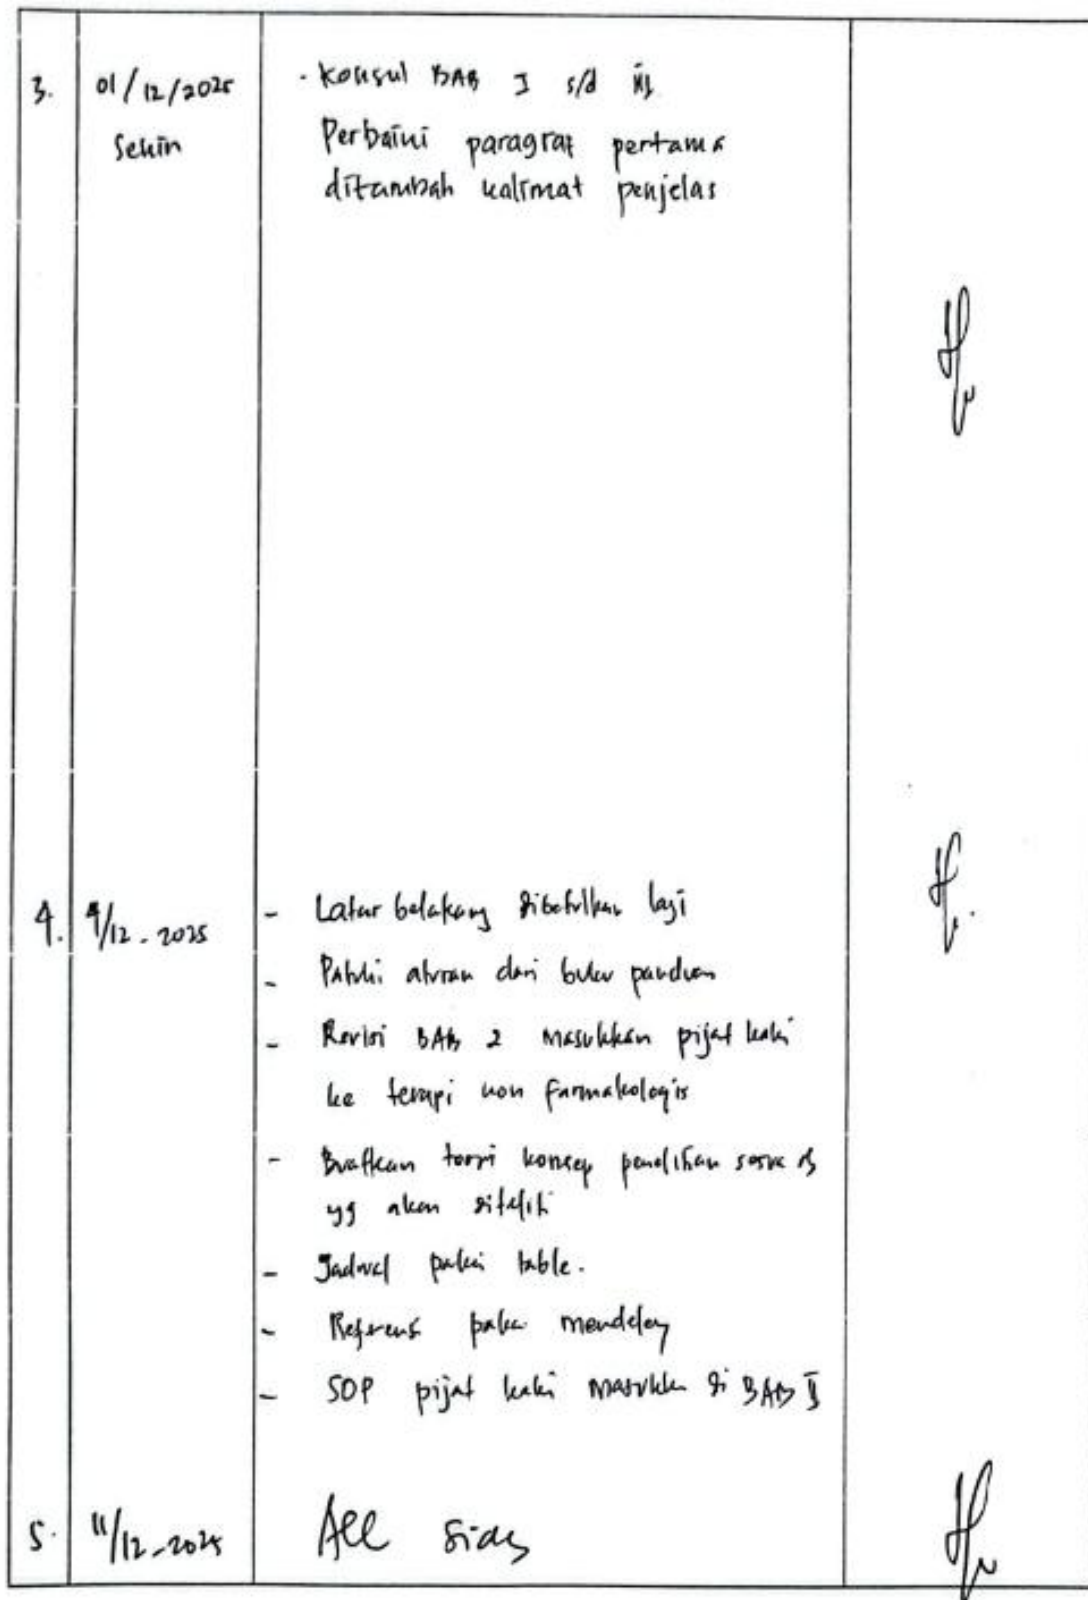 3. 01/12/2025 - Konsul BAB I s/d
Senin Perbaiki paragraf pertama
ditambah kalimat penjelas
4. 4/12-2025 - Latar belakang dibetulkan lagi
- Patuhi aturan dari buku panduan
- Revisi BAB 2 masukkan pijat kaki
ke terapi non farmakologis
- Buatkan teori konsep penelitian sesuai
yg akan diteliti
- Jadwal pakai table.
- Referensi pakai mendeley
- SOP pijat kaki masukkan di BAB II
5. 11/12-2025 Acc